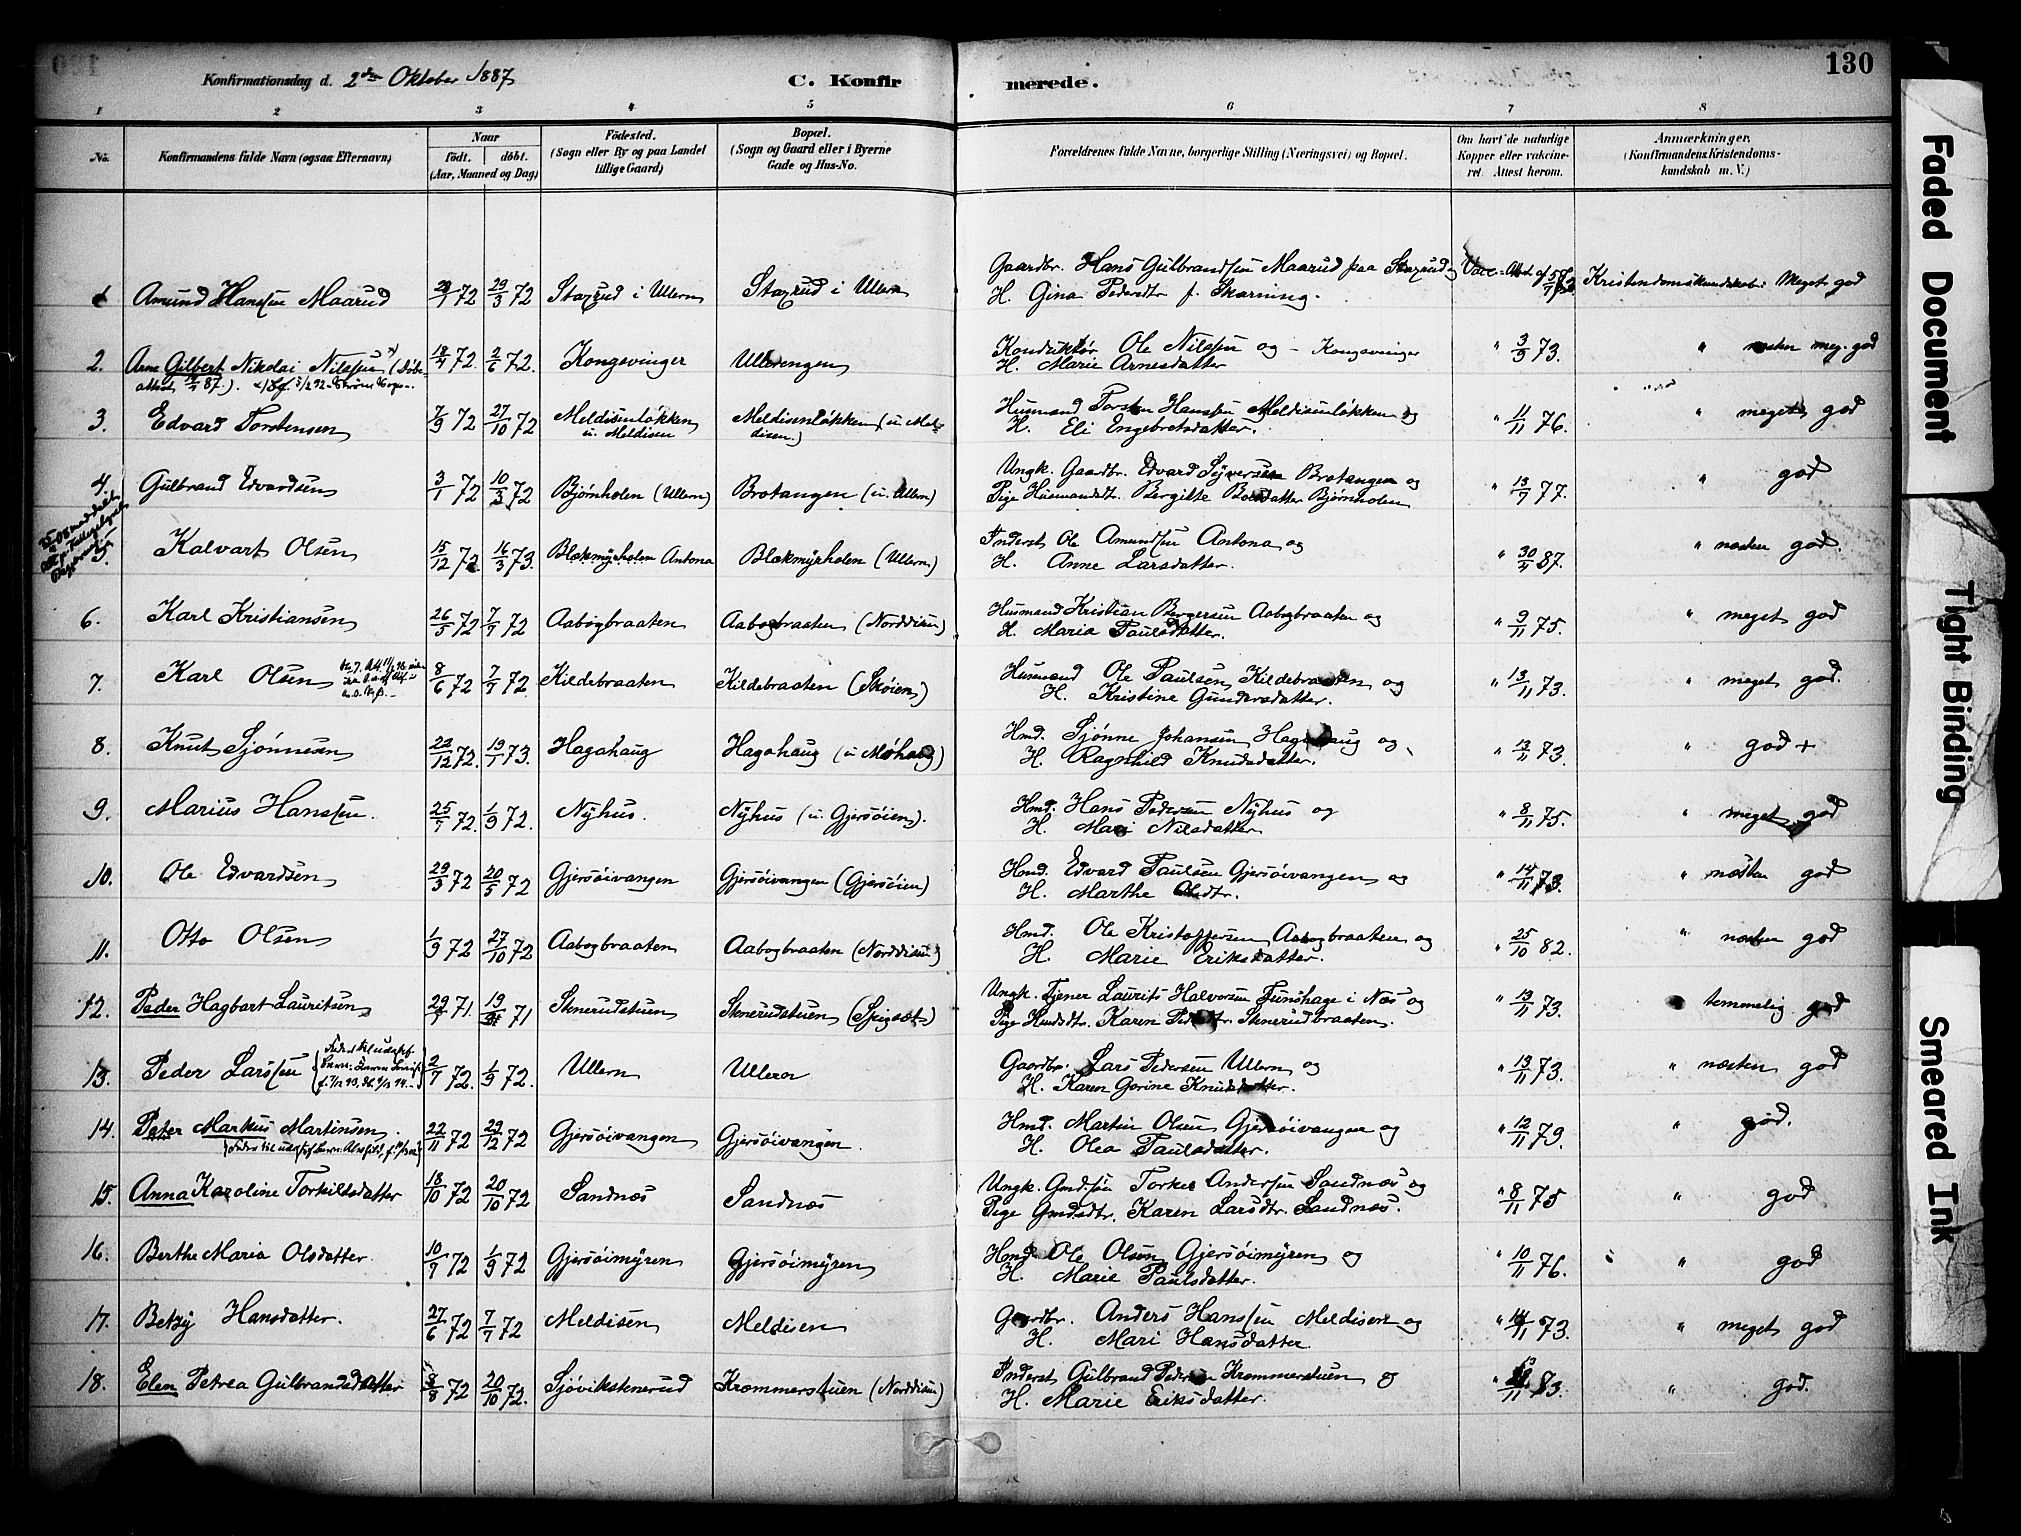 130
Konfirmationsdag d. 2den Oktober 1887
C. Konfirmerede.
1 2 3 4 5 6 7 8
No. Konfirmandens fulde Navn (ogsaa Efternavn) Naar født. døbt. (Aar, Maaned og Dag) Födested. (Sogn eller By og paa Landet tillige Gaard) Bopæl. (Sogn og Gaard eller i Byerne Gade og Hus-No. Forældrenes fulde Navne, borgerlige Stilling (Næringsvei) og Bopæl. Om havt de naturlige Kopper eller vakcineret. Attest herom. Anmærkninger. (Konfirmandens Kristendomskundskab m. V.)
1 Amund Hanssen Maarud 72 29/3 72 Staxrud i Ullern Staxrud i Ullern Gaardbr. Hans Gulbrandsen Maarud paa Staxrud og
H. Gina Pedersdtr f. Skarning. Kristendomskundskab: Meget god
2. Arne Gilbert Nikolai Nilssen 18/4 72 2/6 72. Kongsvinger Ullerengen Konduktør Ole Nilssen og - Kongsvinger
H. Marie Arnesdatter " 3/9 73. " næsten meg. god
3. Edvard Torstensen 7/9 72 27/10 72 Meldisenløkken u. Meldisen Meldisenløkken (u. Meldisen) Husmand Torsten Hanssen Meldisenløkken og
H. Eli Engebretsdatter. " 11/11 76. " meget god
4. Gulbrand Edvardsen 3/1 72 10/3 72 Bjørnholen (Ullern) Brotangen (u. Ullern) Ungk. Gaardbr. Edvard Syversen Brotangen og
Pige Husmandsdt. Bergitte Bjørnholen " 13/9 77. " god
5. Kalvart Olsen 15/12 72 16/3 73. Blækmyrholen Antona Blækmyrholen (Ullern) Inderst Ole Amundsen Antona og
H. Anne Larsdatter. " 87. " næsten god.
6. Karl Kristiansen 26/5 72 7/7 72 Aabogbraaten Aabogbraaten (Norddisen) Husmand Kristian Bergersen Aabogbraaten og
H. Maria Paulsdatter. " 9/11 75. " meget god
7. Karl Olsen 8/6 72 7/7 72. Kildebraaten Kildebraaten (Skøien) Husmand Ole Paulsen Kildebraaten og
H. Kristine Gundersdatter. " 13/11 73. " meget god.
8. Knut Sjønnesen 22/12 72. 19/1 73. Hagahaug Hagahaug (u Møhaug) Hmd. Sjønne Johansen Hagahaug og
H. Ragnhild Knudsdatter. " 13/11 73. " god +
9. Marius Hanssen. 25/7 72. 1/9 72. Nyhus. Nyhus (u. Gjersøien). Hmd. Hans Pedersen Nyhus og
H. Mari Nilsdatter " 8/11 75. " meget god
10. Ole Edvardsen 29/3 72 20/5 72 Gjersøivangen Gjersøivangen (Gjersøien) Hmd. Edvard Paulsen Gjersøivangen og
H. Marthe Olsdtr. " 14/11 73. " næsten god
11. Otto Olsen 1/9 72 27/10 72 Aabogbraaten Aabogbraaten (Norddisen) Hmd. Ole Kristoffersen Aabogbraaten og
H. Marie Eriksdatter. " 25/10 82. " næsten god
12. Peder Hagbart Lauritsen 29/7 71. 71 Stenerudstuen Stenerudstuen (Spigset) Ungk. Tjener Laurits Halvorsen Funshage i Næs og
Pige Hmdsdtr. Karen Pedersdtr. Stenerudbraaten. " 13/11 73. temmelig god
13. Peder Larssen 2/7 72. 1/9 72. Ullern Ullern Gaardbr. Lars Pedersen Ullern og
H. Karen Gorine Knudsdatter. " 13/11 73. " næsten god
14. Peter Markus Martinsen. 22/11 72 29/12 72 Gjersøivangen Gjersøivangen Hmd. Martin Olsen Gjersøivangen og
H. Olea Paulsdatter. " 12/11 79. " god.
15. Anna Karoline Torkilsdatter 18/10 72 20/10 72 Sandnæs Sandnæs Ungk. Gmdsøn Torkel Andersen Sandnæs og
Pige Gmdsdtr. Karen Larsdtr. Sandnæs. " 8/11 75 " god
16. Berthe Maria Olsdatter. 10/7 72 1/9 72 Gjersøimyren Gjersøimyren Hmd. Ole Olsen Gjersøimyren og
H. Marie Paulsdatter. " 10/11 76. " god
17. Betzy Hansdatter. 27/6 72 7/7 72 Meldisen Meldisen Gaardbr. Anders Hanssen Meldisen og
H. Mari Hansdatter " 14/11 73. " meget god
18. Elen Petrea Gulbrandsdatter 8/8 72 20/10 72. Sjøvikstenerud Krommerstuen (Norddisen) Inderst Gulbrand Pedersen Krommerstuen og
H. Marie Eriksdatter. 83. " god.
Faded Document
Tight Binding
Smeared Ink